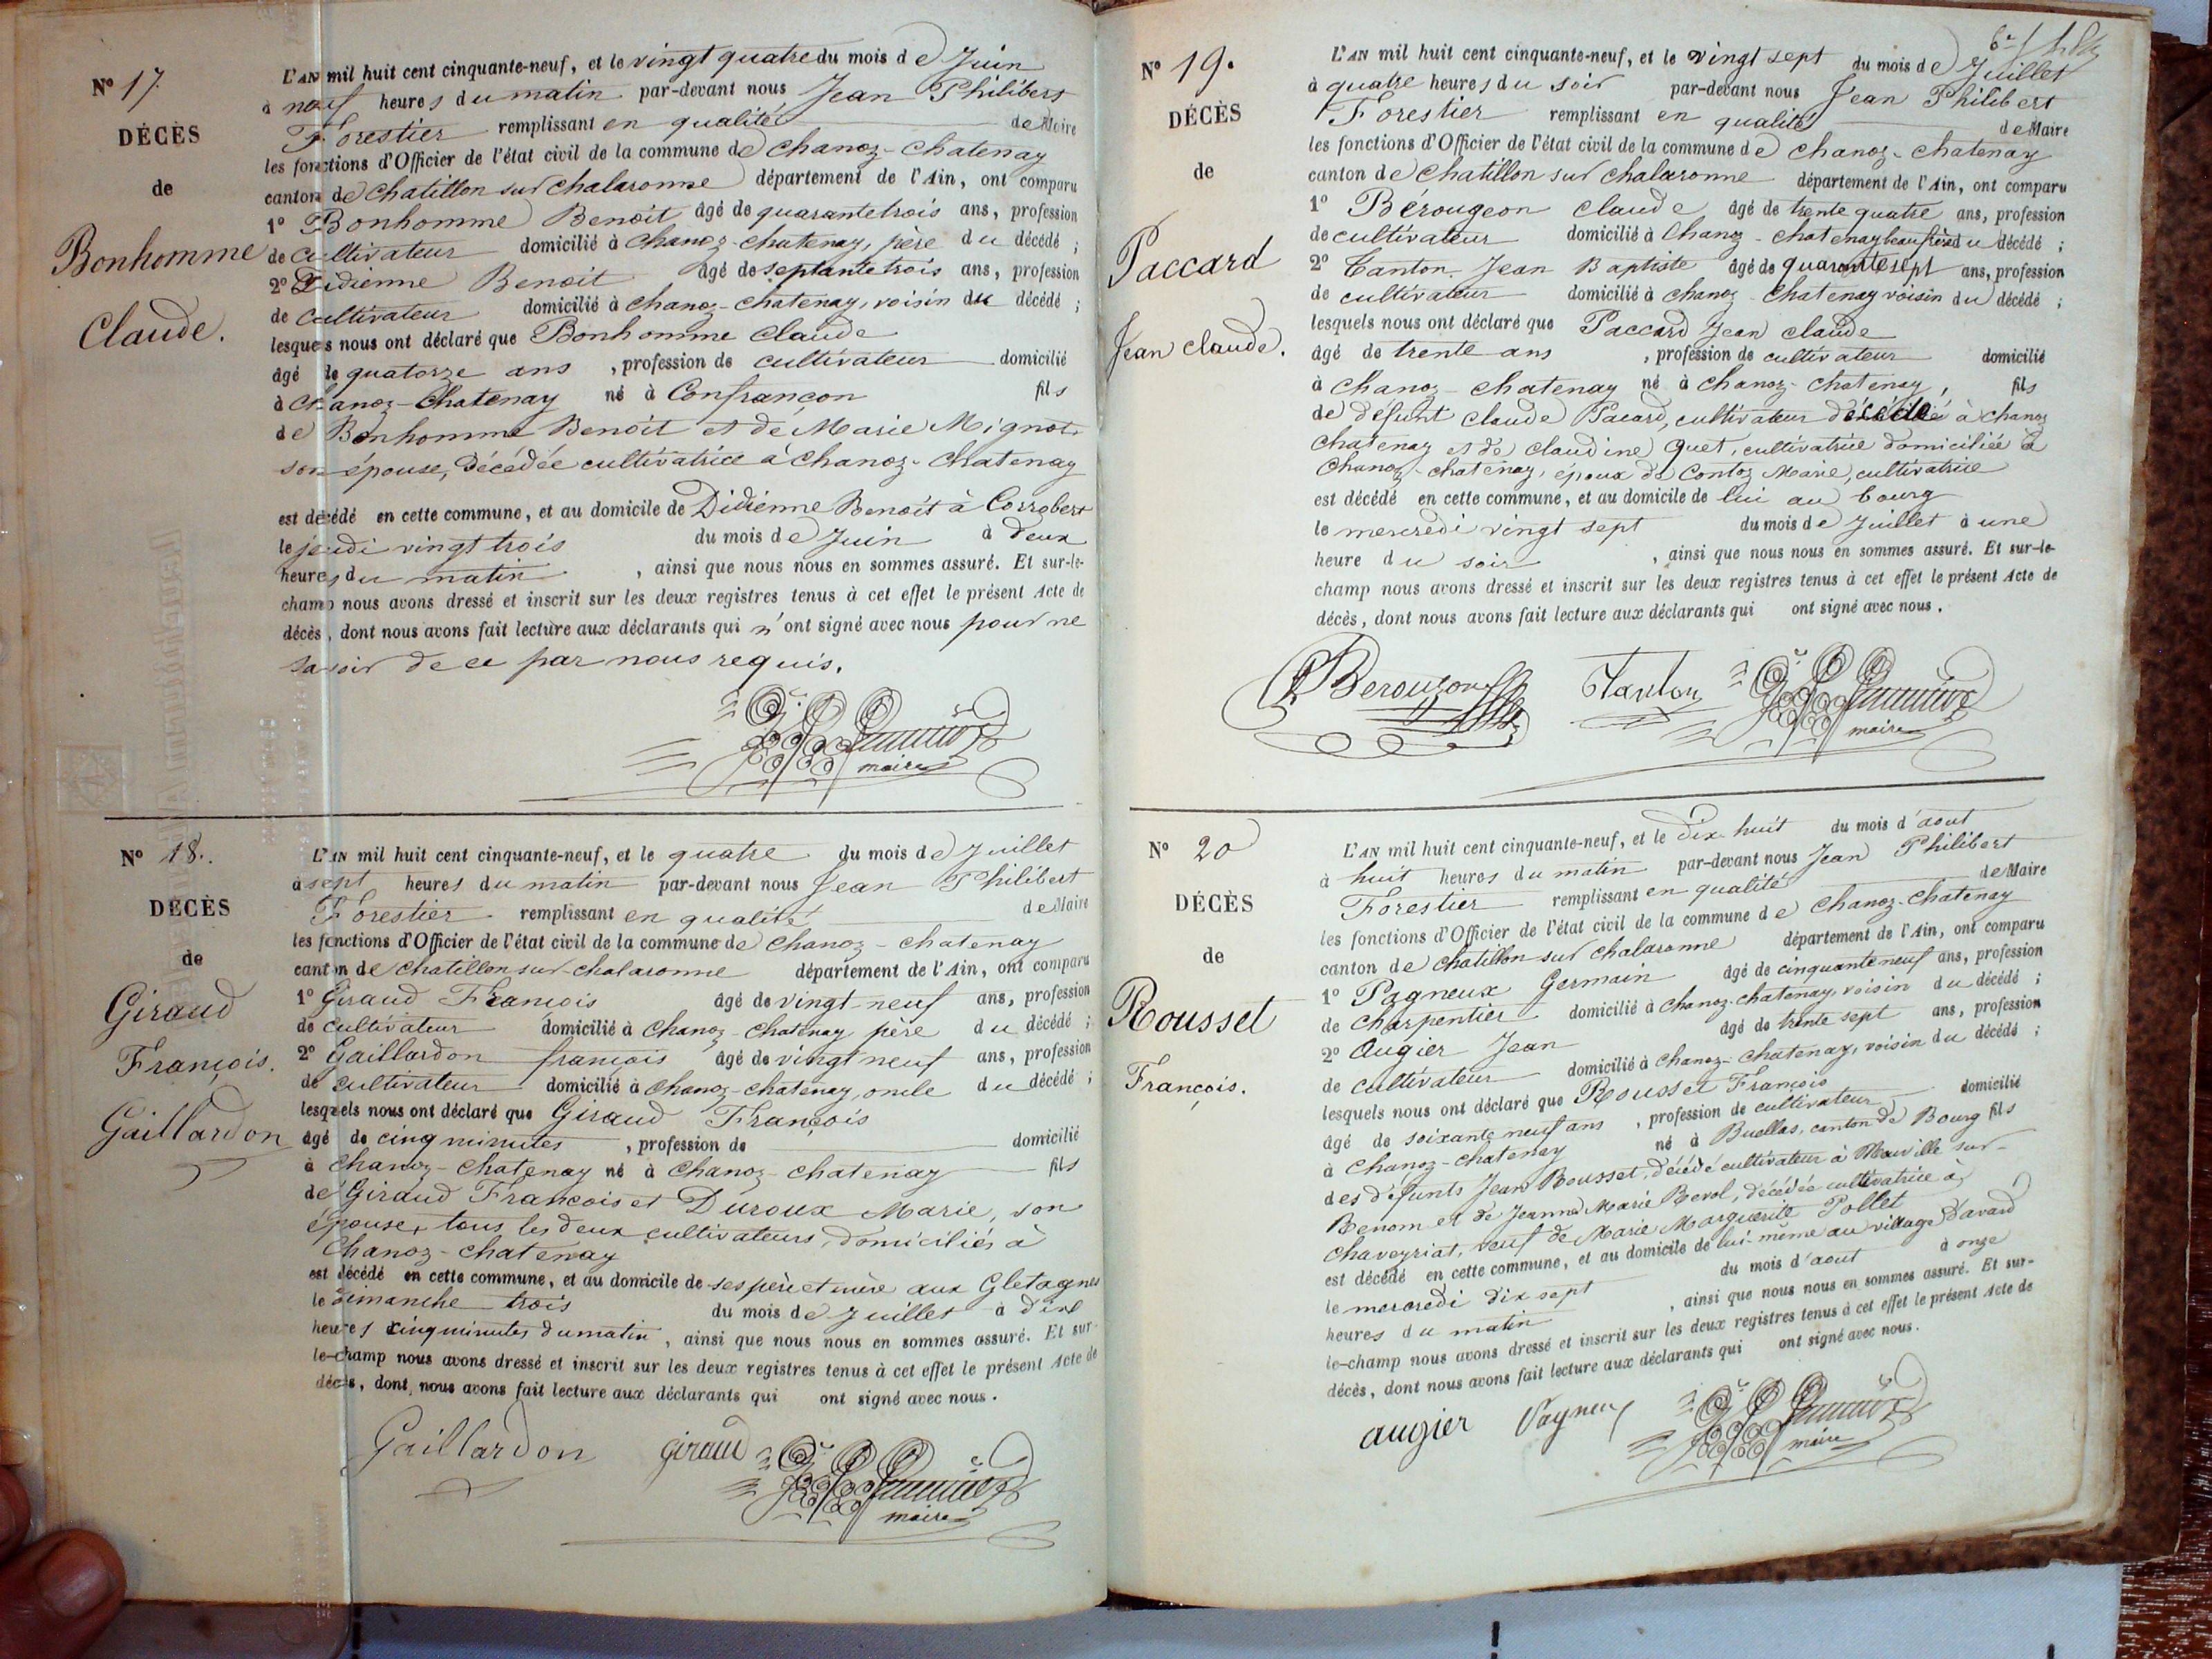 Nº 17
DÉCÈS
de
Bonhomme
Claude.
L'AN mil huit cent cinquante-neuf, et le vingt quatre du mois de Juin
à neuf heures du matin par-devant nous Jean Philibert
Forestier remplissant en qualité de Maire
les fonctions d'Officier de l'état civil de la commune de Chanoz-Chatenay
canton de Chatillon sur Chalaronne département de l'Ain, ont comparu
1º Bonhomme Benoît âgé de quarante trois ans, profession
de cultivateur domicilié à Chanoz-chatenay, père du décédé ;
2º Didienne Benoit âgé de septante trois ans, profession
de cultivateur domicilié à Chanoz-chatenay, voisin du décédé ;
lesquels nous ont déclaré que Bonhomme Claude
âgé de quatorze ans , profession de cultivateur domicilié
à Chanoz-Chatenay né à Confrançon fils
de Bonhomme Benoît et de Marie Mignot
son épouse, décédée cultivatrice à Chanoz-Chatenay
est décédé en cette commune, et au domicile de Didienne Benoît à Corrobert
le jeudi vingt trois du mois de Juin à deux
heures du matin , ainsi que nous nous en sommes assuré. Et sur-le-
champ nous avons dressé et inscrit sur les deux registres tenus à cet effet le présent Acte de
décès, dont nous avons fait lecture aux déclarants qui n'ont signé avec nous pour ne
savoir de ce par nous requis.
maire
Nº 18.
DÉCÈS
de
Giraud
François.
Gaillardon
L'AN mil huit cent cinquante-neuf, et le quatre du mois de Juillet
à sept heures du matin par-devant nous Jean Philibert
Forestier remplissant en qualité de Maire
les fonctions d'Officier de l'état civil de la commune de Chanoz-chatenay
canton de Chatillon sur-chalaronne département de l'Ain, ont comparu
1º Giraud François âgé de vingt-neuf ans, profession
de cultivateur domicilié à Chanoz-chatenay père du décédé ;
2º Gaillardon françois âgé de vingt neuf ans, profession
de cultivateur domicilié à Chanoz-chatenay, oncle du décédé ;
lesquels nous ont déclaré que Giraud François
âgé de cinq minutes , profession de domicilié
à Chanoz-Chatenay né à Chanoz-chatenay fils
de Giraud François et Duroux Marie, son
épouse, tous les deux cultivateurs, domiciliés à
Chanoz-chatenay
est décédé en cette commune, et au domicile de ses père et mère aux Gletagnes
le dimanche trois du mois de Juillet à dix
heures cinq minutes du matin , ainsi que nous nous en sommes assuré. Et sur-
le-champ nous avons dressé et inscrit sur les deux registres tenus à cet effet le présent Acte de
décès, dont nous avons fait lecture aux déclarants qui ont signé avec nous.
Gaillardon giraud
maire
Nº 19.
DÉCÈS
de
Paccard
Jean Claude.
L'AN mil huit cent cinquante-neuf, et le vingt sept du mois de Juillet
à quatre heures du soir par-devant nous Jean Philibert
Forestier remplissant en qualité de Maire
les fonctions d'Officier de l'état civil de la commune de Chanoz-chatenay
canton de Chatillon sur Chalaronne département de l'Ain, ont comparu
1º Bérougeon Claude âgé de trente quatre ans, profession
de cultivateur domicilié à Chanoz-chatenay beau frère du décédé ;
2º Tanton Jean Baptiste âgé de quarante sept ans, profession
de cultivateur domicilié à Chanoz-Chatenay voisin du décédé ;
lesquels nous ont déclaré que Paccard Jean Claude
âgé de trente ans , profession de cultivateur domicilié
à Chanoz-chatenay né à Chanoz-chatenay, fils
de défunt Claude Pacard, cultivateur décédé à Chanoz
chatenay et de Claudine Quet, cultivatrice domiciliée à
Chanoz-chatenay, époux de Contoz Marie, cultivatrice
est décédé en cette commune, et au domicile de lui au bourg
le mercredi vingt sept du mois de Juillet à une
heure du soir , ainsi que nous nous en sommes assuré. Et sur-le-
champ nous avons dressé et inscrit sur les deux registres tenus à cet effet le présent Acte de
décès, dont nous avons fait lecture aux déclarants qui ont signé avec nous.
Tanton
maire
Nº 20
DÉCÈS
de
Rousset
François.
L'AN mil huit cent cinquante-neuf, et le dix huit du mois d'aout
à huit heures du matin par-devant nous Jean Philibert
Forestier remplissant en qualité de Maire
les fonctions d'Officier de l'état civil de la commune de Chanoz-Chatenay
canton de Chatillon sur Chalaronne département de l'Ain, ont comparu
1º Pagneux Germain âgé de cinquante neuf ans, profession
de charpentier domicilié à Chanoz-chatenay, voisin du décédé ;
2º Augier Jean âgé de trente sept ans, profession
de cultivateur domicilié à Chanoz-chatenay, voisin du décédé ;
lesquels nous ont déclaré que Rousset François
âgé de soixante neuf ans , profession de cultivateur domicilié
à Chanoz-chatenay né à Buellas, canton de Bourg fils
des défunts Jean Rousset, décédé cultivateur à Neuville sur-
Renom et de Jeanne Marie Revol, décédée cultivatrice à
Chaveyriat, veuf de Marie Marguerite Pollet
est décédé en cette commune, et au domicile de lui-même au village Davard
le mercredi dix sept du mois d'aout à onze
heures du matin , ainsi que nous nous en sommes assuré. Et sur-
le-champ nous avons dressé et inscrit sur les deux registres tenus à cet effet le présent Acte de
décès, dont nous avons fait lecture aux déclarants qui ont signé avec nous.
augier Pagneux
maire